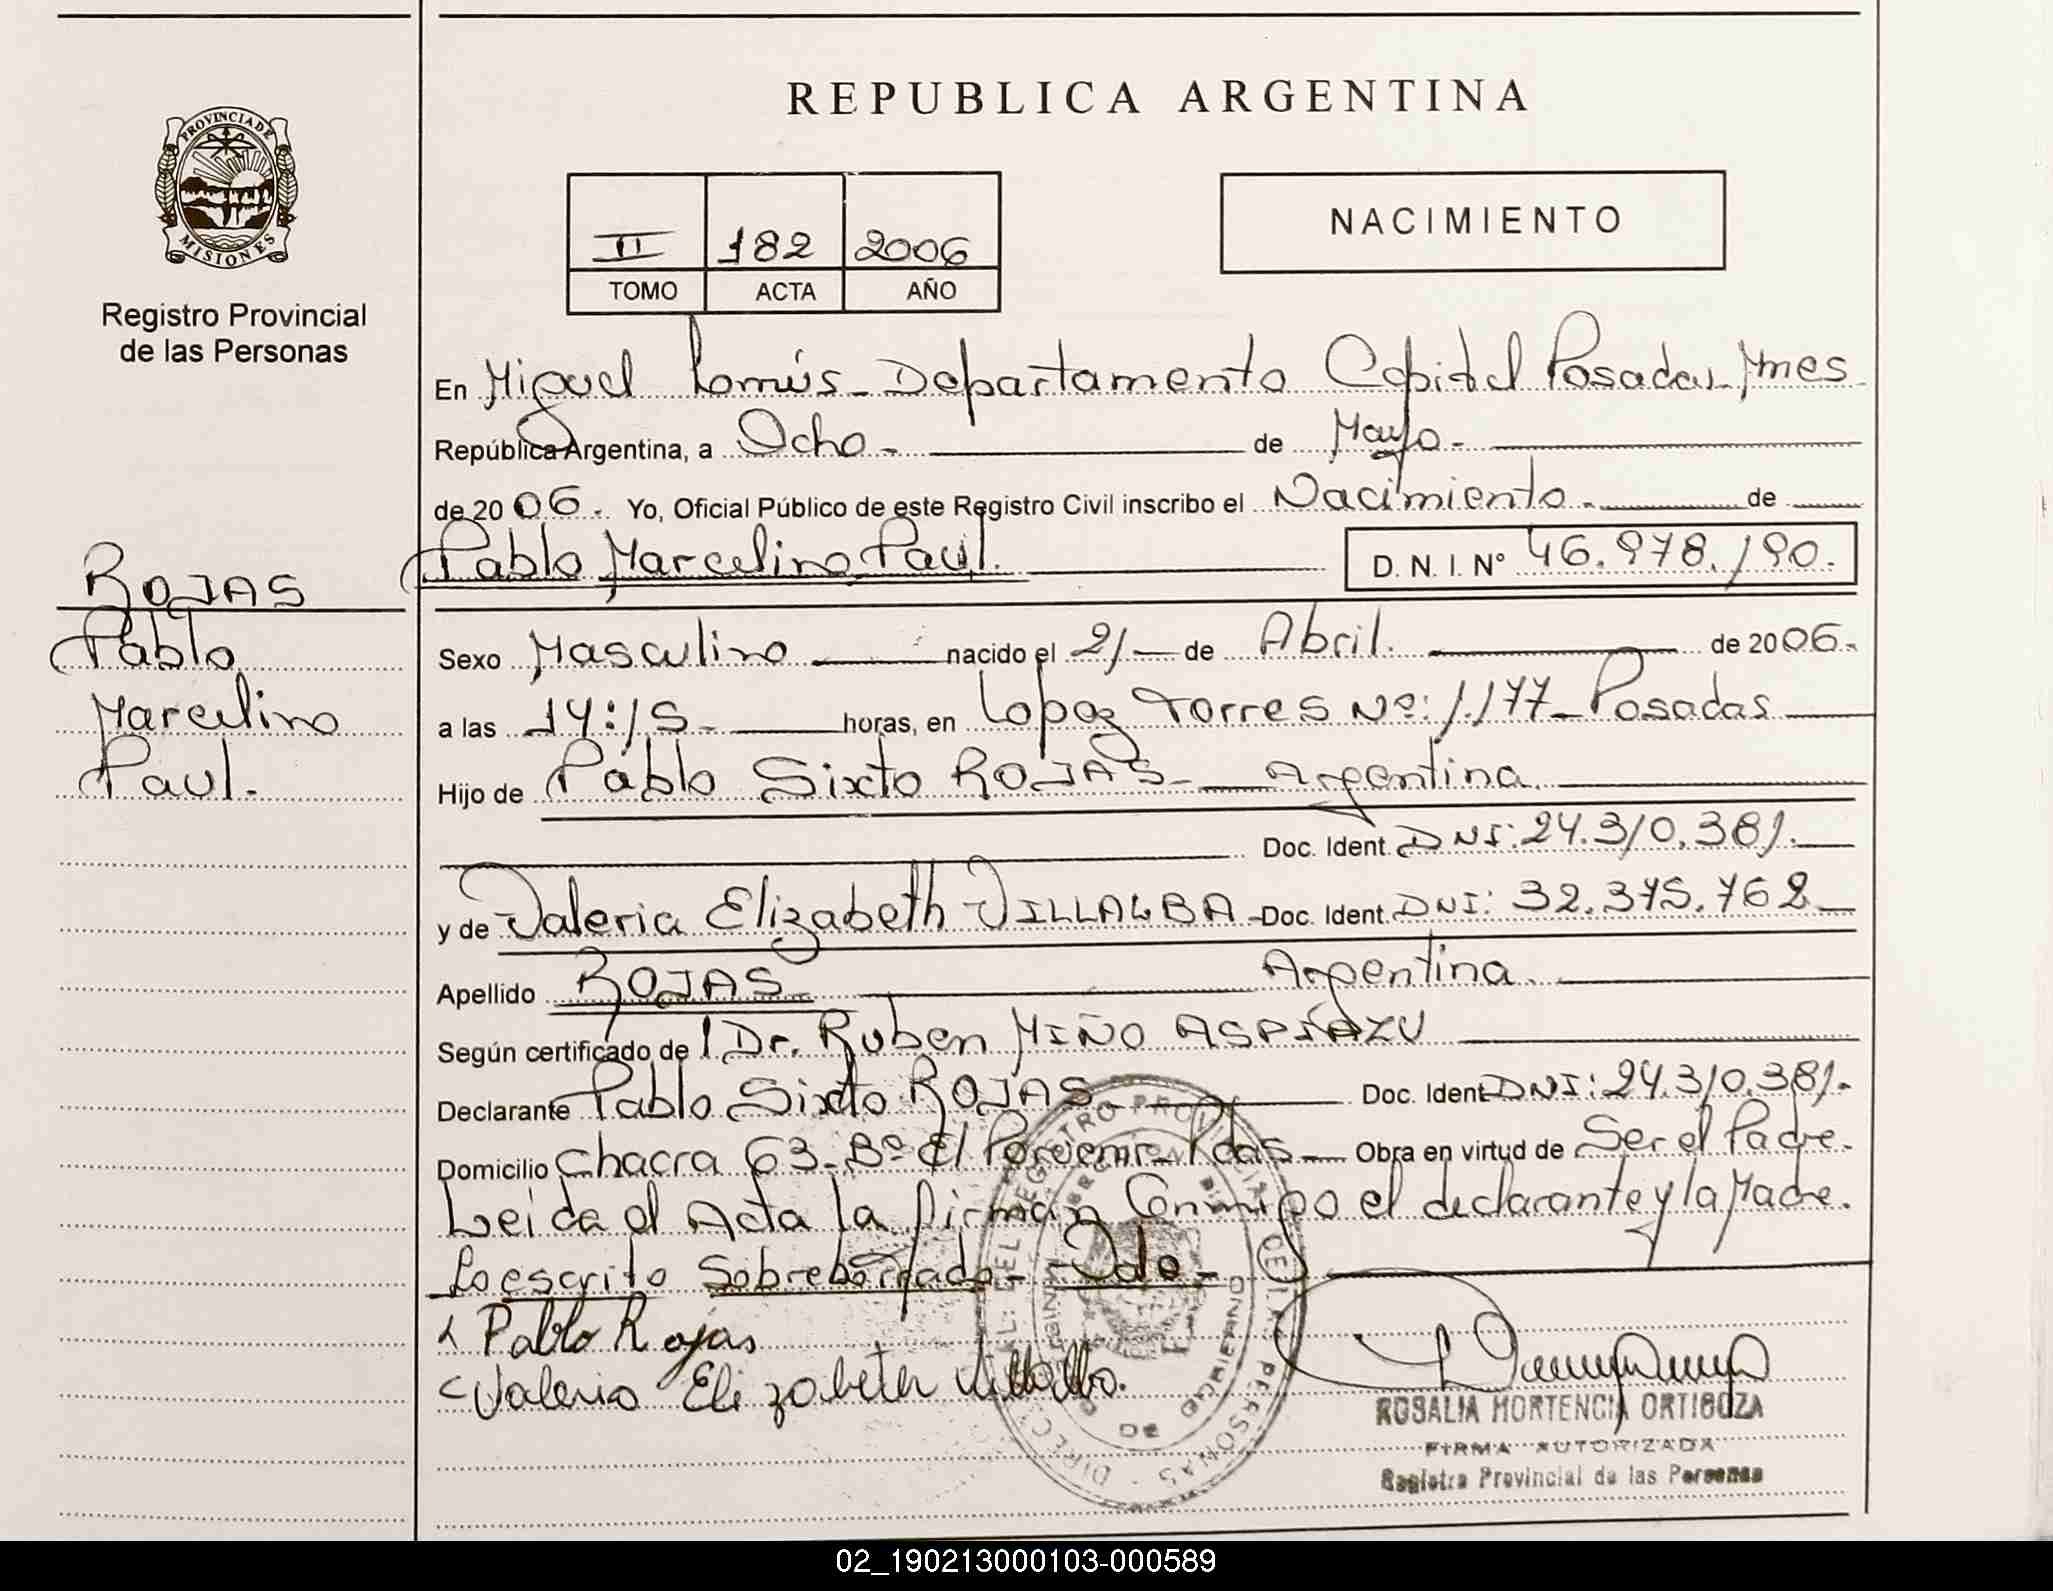 REPUBLICA ARGENTINA
PROVINCIA DE
MISIONES
Registro Provincial
de las Personas
II 182 2006
TOMO ACTA AÑO
NACIMIENTO
En Miguel Lanús - Departamento Capital Posadas - Mnes
República Argentina, a Ocho - de Mayo -
de 2006. Yo, Oficial Público de este Registro Civil inscribo el Nacimiento - de
Pablo Marcelino Paul. D. N. I. Nº 46.978.190.
ROJAS
Pablo
Marcelino
Paul.
Sexo Masculino nacido el 21 de Abril. de 2006.
a las 14:15 - horas, en Lopez Torres Nº: 1.177 - Posadas
Hijo de Pablo Sixto ROJAS - Argentina.
Doc. Ident. DNI: 24.310.381.
y de Valeria Elizabeth VILLALBA - Doc. Ident. DNI: 32.375.762
Apellido ROJAS Argentina.
Según certificado de l Dr. Ruben MIÑO ASPIAZU
Declarante Pablo Sixto ROJAS Doc. Ident DNI: 24.310.381.
Domicilio Chacra 63 - Bº El Porvenir - Pdas - Obra en virtud de Ser el Padre.
Leida el Acta la firman Conmigo el declarante y la Madre.
Lo escrito Sobreborrado -
Pablo Rojas
Valeria Elizabeth Villalba.
ROSALIA HORTENCIA ORTIGOZA
FIRMA AUTORIZADA
Registro Provincial de las Personas
02_190213000103-000589